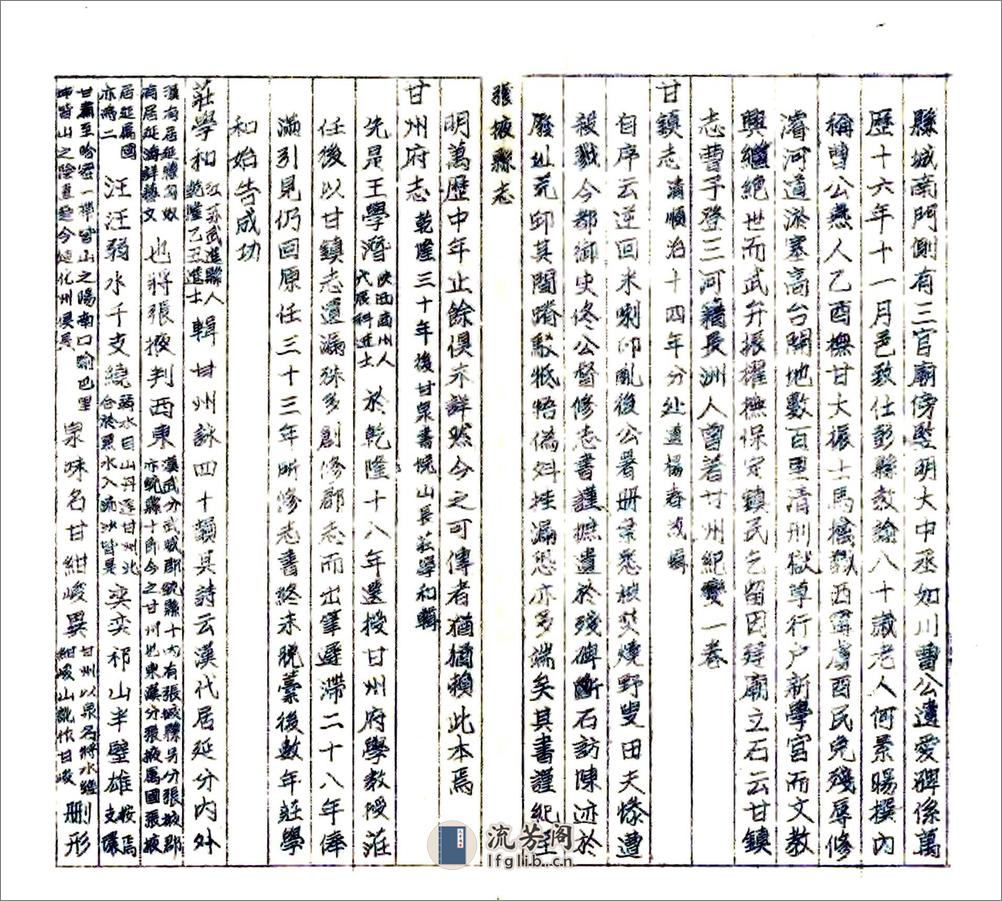 縣城南門側有三官廟傍監明大中丞如川曹公遺愛碑係萬
歷十六年十一月邑致仕彭縣教諭八十歲老人何景暘撰內
稱曹公燕人乙酉撫甘大振士馬西寧虜酉民免殘辱修
濬河道淤塞高台開地數百里清刑獄尊行户新學宮而文教
興繼絕世而武弁振擢撫保守鎮民乞留因建廟立石云甘鎮
志曹子登三河籍長洲人曾著甘州紀變一卷
甘鎮志 清順治十四年分處道楊春茂輯
自序云逆回米喇卬亂後公署册案悉被焚燒野叟田夫慘遭
殺戮今都御史佟公督修志書謹摭遺於殘碑斷石訪陳迹於
廢址荒邱其間踳駁牴牾偽舛掛漏恐亦多端矣其書謹紀至
張掖縣志
明萬歷中年止餘俱未詳然今之可傳者猶賴此本焉
甘州府志 乾隆三十年後甘泉書院山長莊學和輯
先是王學潛 陝西商州人 進士 於乾隆十八年選授甘州府學教授莊
任後以甘鎮志遺漏殊多創修郡志而出筆遲滯二十八年俸
滿引見仍回原任三十三年所修志書終未脫藁後數年莊學
和始告成功
莊學和 江蘇武進縣人 乾隆乙丑進士 輯甘州詠四十韻其詩云漢代居延分內外
漢有居延縣匈奴 有居延海詳藝文 也將張掖判西東 漢武分武威郡統縣十內有張掖縣另分張掖郡 亦統縣十即今之甘州也東漢分張掖屬國張掖
居延屬國 亦為二 汪汪弱水千支繞 弱水自山丹逕甘州北 合於黑水入流沙皆是 奕奕祁山半壁雄 按焉支祁
甘肅至哈密一帶皆山之陽南口喻巴里 坤皆山之陰直至今迪化州吳昊 泉味名甘紺峻異 甘州以泉名將水 紺峻山說作甘峻 刪形
流芳阁
lfglib.cn